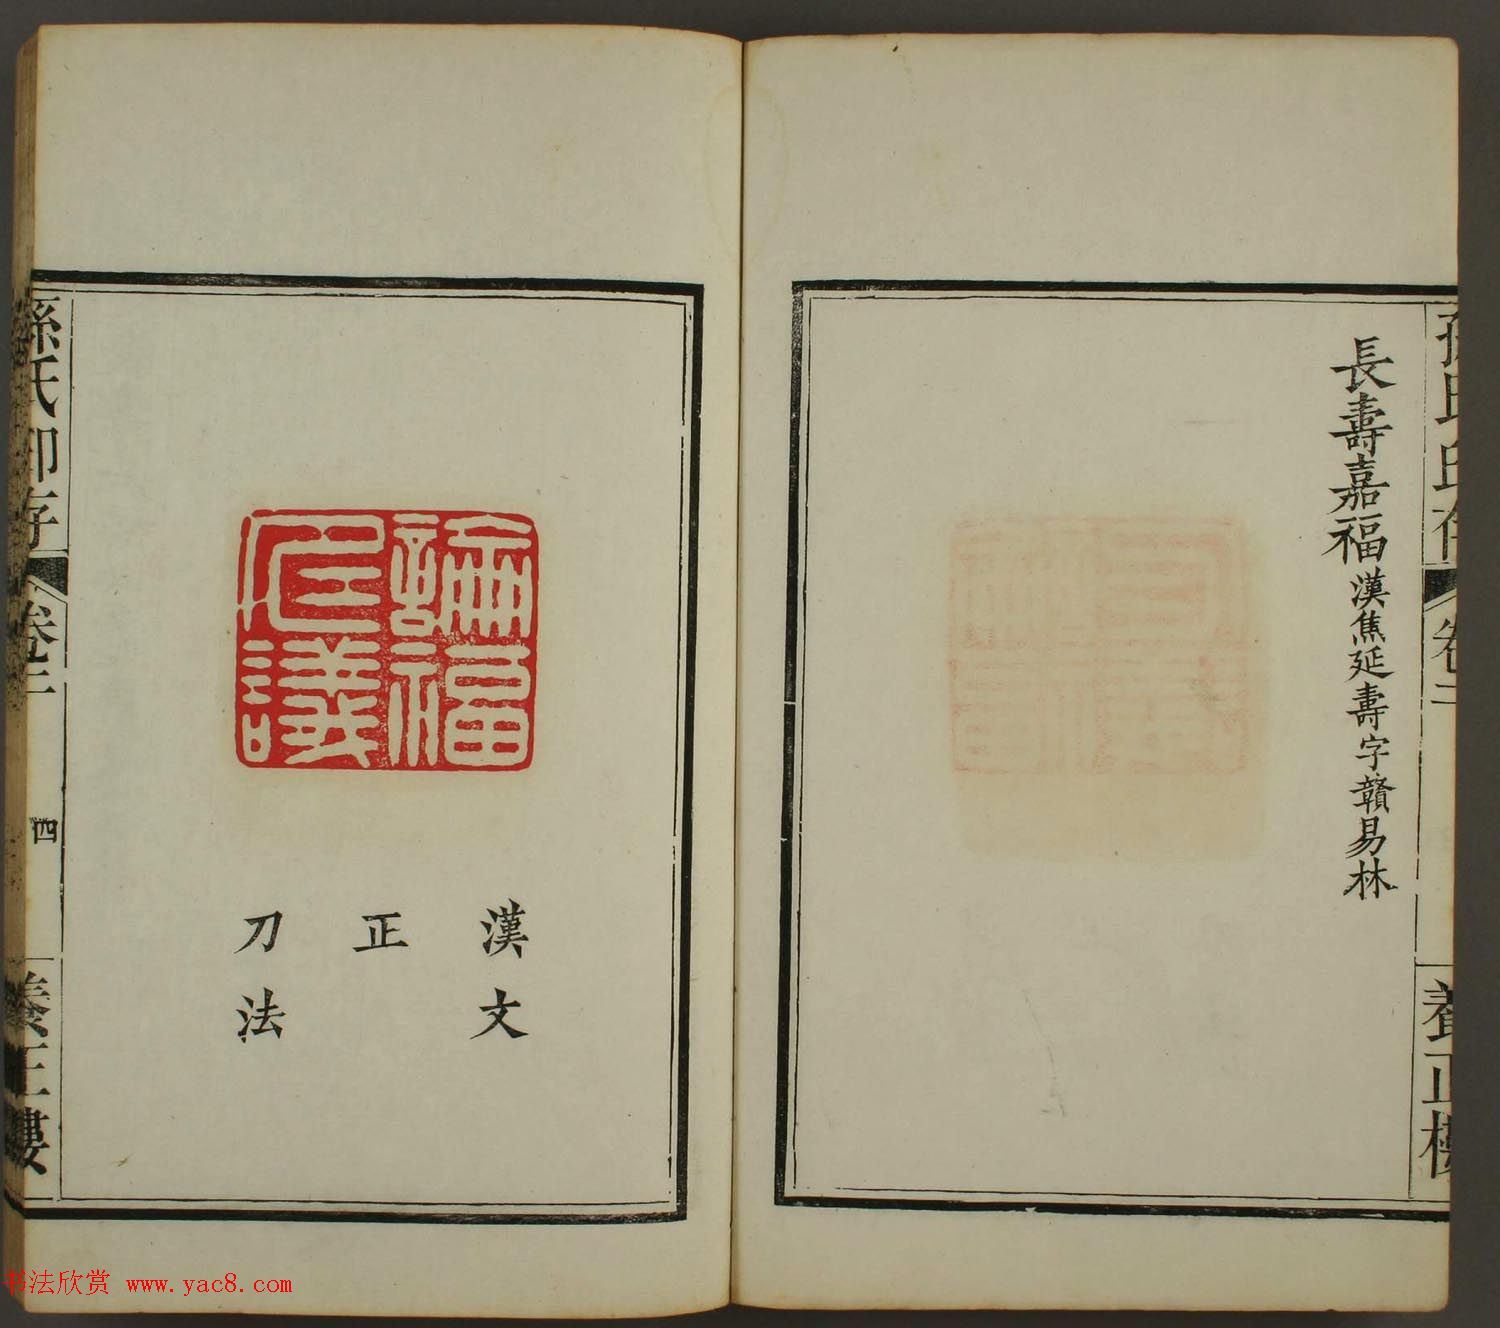 孫氏印存 卷二 養正樓
長壽嘉福 漢焦延壽字贛易林
論福
議
漢文
正
刀法
孫氏印存 卷二 四 養正樓
书法欣赏 www.yac8.com